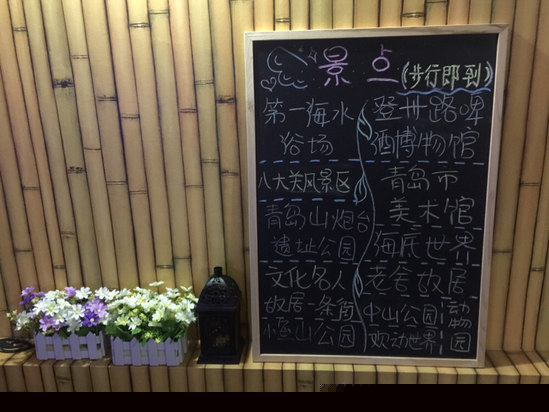 景点 (步行即到)
第一海水
浴场
八大关风景区
青岛山炮台
遗址公园
文化名人
故居一条街
小鱼山公园
登州路啤
酒博物馆
青岛市
美术馆
海底世界
老舍故居
中山公园 动物园
欢动世界